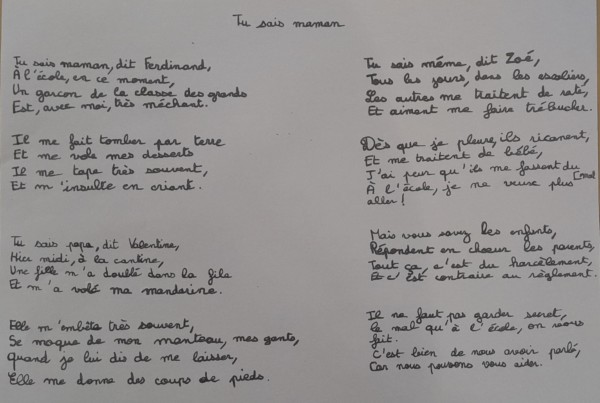 Tu sais maman
Tu sais maman, dit Ferdinand,
À l'école, en ce moment,
Un garçon de la classe des grands
Est, avec moi, très méchant.
Il me fait tomber par terre
Et me vole mes desserts
Il me tape très souvent,
Et m'insulte en criant.
Tu sais papa, dit Valentine,
Hier midi, à la cantine,
Une fille m'a doublé dans la file
Et m'a volé ma mandarine.
Elle m'embête très souvent,
Se moque de mon manteau, mes gants,
quand je lui dis de me laisser,
Elle me donne des coups de pieds.
Tu sais mémé, dit Zoé,
Tous les jours, dans les escaliers,
Les autres me traitent de raté,
Et aiment me faire trébucher.
Dès que je pleure, ils ricanent,
Et me traitent de bébé,
J'ai peur qu'ils me fassent du
[mal
À l'école, je ne veux plus
aller!
Mais vous savez les enfants,
Répondent en choeur les parents,
Tout ça, c'est du harcèlement,
Et c'est contraire au règlement.
Il ne faut pas garder secret,
le mal qu'à l'école, on vous
fait.
C'est bien de nous avoir parlé,
Car nous pouvons vous aider.